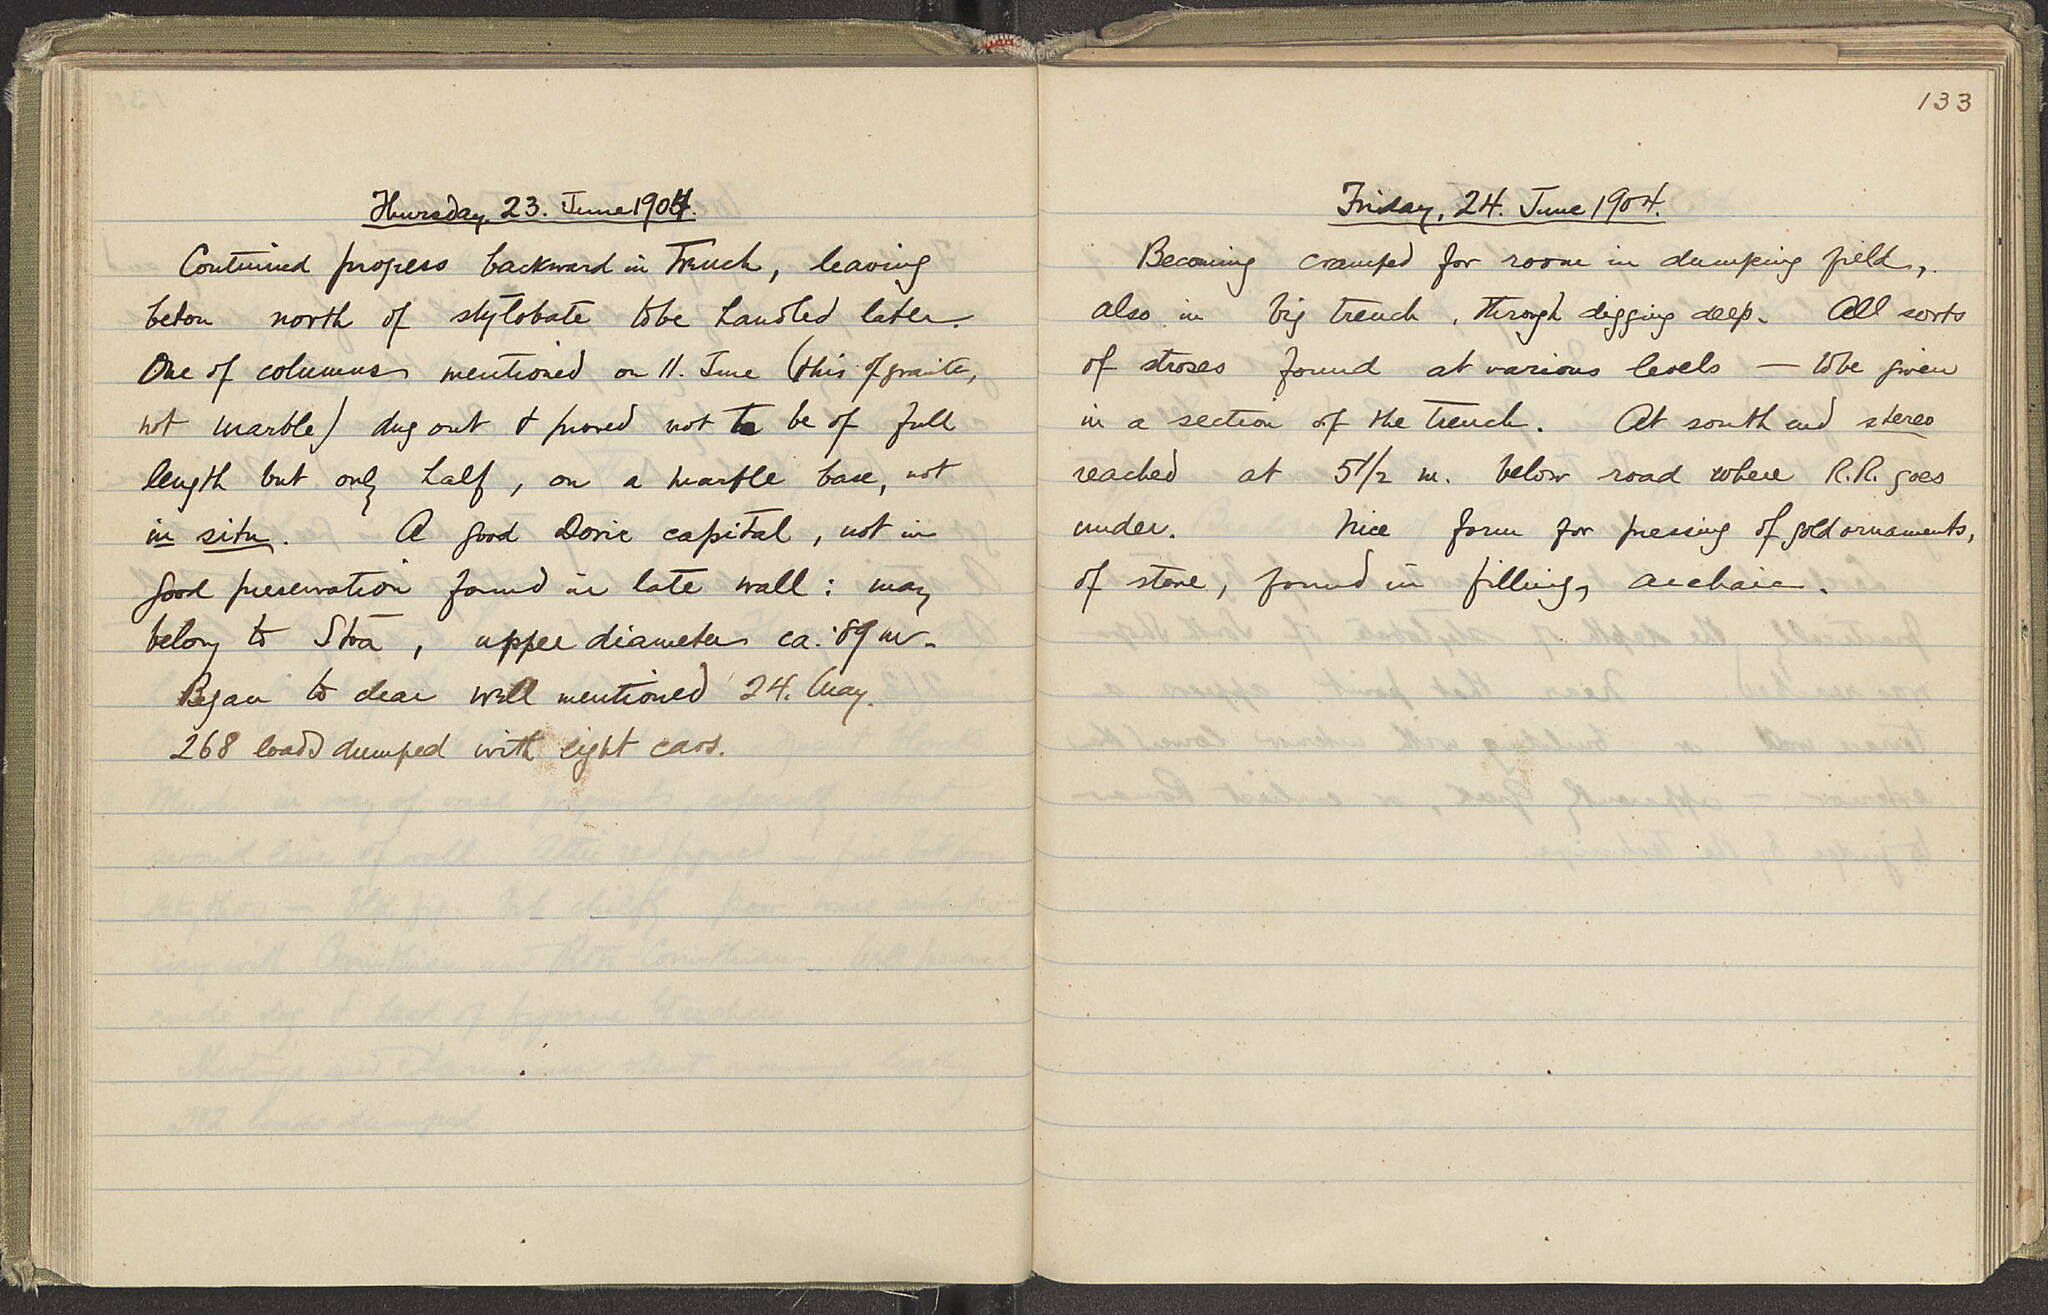 Thursday, 23. June 1904.
Continued progress backward in Trench, leaving
beton north of stylobate to be handled later.
One of columns mentioned on 11. June (this of granite,
not marble) dug out & proved not to be of full
length but only half, on a marble base, not
in situ. A good Doric capital, not in
good preservation found in late wall: may
belong to Stoa, upper diameter ca. .89 m.
Began to clear well mentioned 24. May.
268 loads dumped with eight cars.
133
Friday, 24. June 1904.
Becoming cramped for room in dumping field,
also in big trench, through digging deep. All sorts
of stroses found at various levels — to be given
in a section of the trench. At south end stereo
reached at 5 1/2 m. below road where R.R. goes
under. Nice form for pressing of gold ornaments,
of stone, found in filling, archaic.